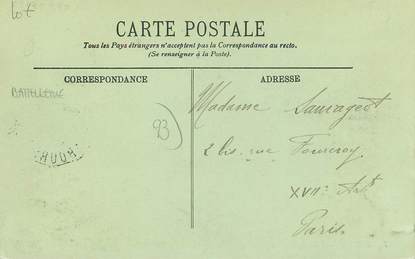 Lot
CARTE POSTALE
Tous les Pays étrangers n'acceptent pas la Correspondance au recto.
(Se renseigner à la Poste).
CORRESPONDANCE
ADRESSE
Madame Sauvageot
2 bis. rue Fourcroy
XVIIe Art
Paris.
93